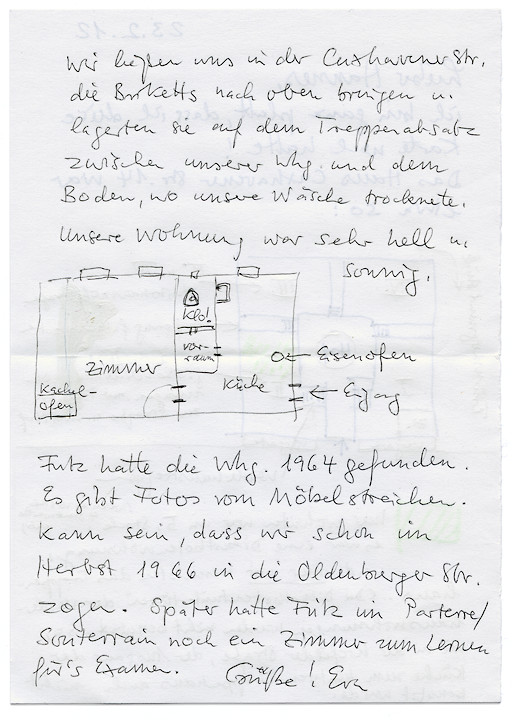 wir ließen uns in der Cuxhavener Str.
die Briketts nach oben bringen u.
lagerten sie auf dem Treppenabsatz
zwischen unserer Whg. und dem
Boden, wo unsere Wäsche trocknete.
Unsere Wohnung war sehr hell u.
sonnig.
Klo!
Vor-
raum
Zimmer
Eisenofen
Küche
Kachel-
ofen
Eingang
Fritz hatte die Whg. 1964 gefunden.
Es gibt Fotos vom Möbelstreichen.
Kann sein, dass wir schon im
Herbst 1966 in die Oldenburger Str.
zogen. Später hatte Fritz im Parterre/
Souterrain noch ein Zimmer zum Lernen
für's Examen. Grüße! Eva